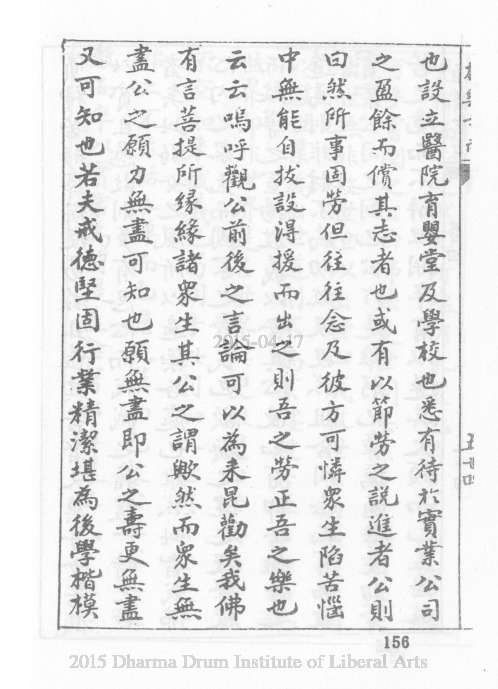 也設立醫院育嬰堂及學校也悉有待於實業公司
之盈餘而償其志者也或有以節勞之說進者公則
曰然所事固勞但往往念及彼方可憐衆生陷苦惱
中無能自拔設得援而出之則吾之勞正吾之樂也
云云嗚呼觀公前後之言論可以為来昆勸矣我佛
有言菩提所緣緣諸衆生其公之謂歟然而衆生無
盡公之願力無盡可知也願無盡即公之壽更無盡
又可知也若夫戒德堅固行業精潔堪為後學楷模
2015-04-17
156
2015 Dharma Drum Institute of Liberal Arts